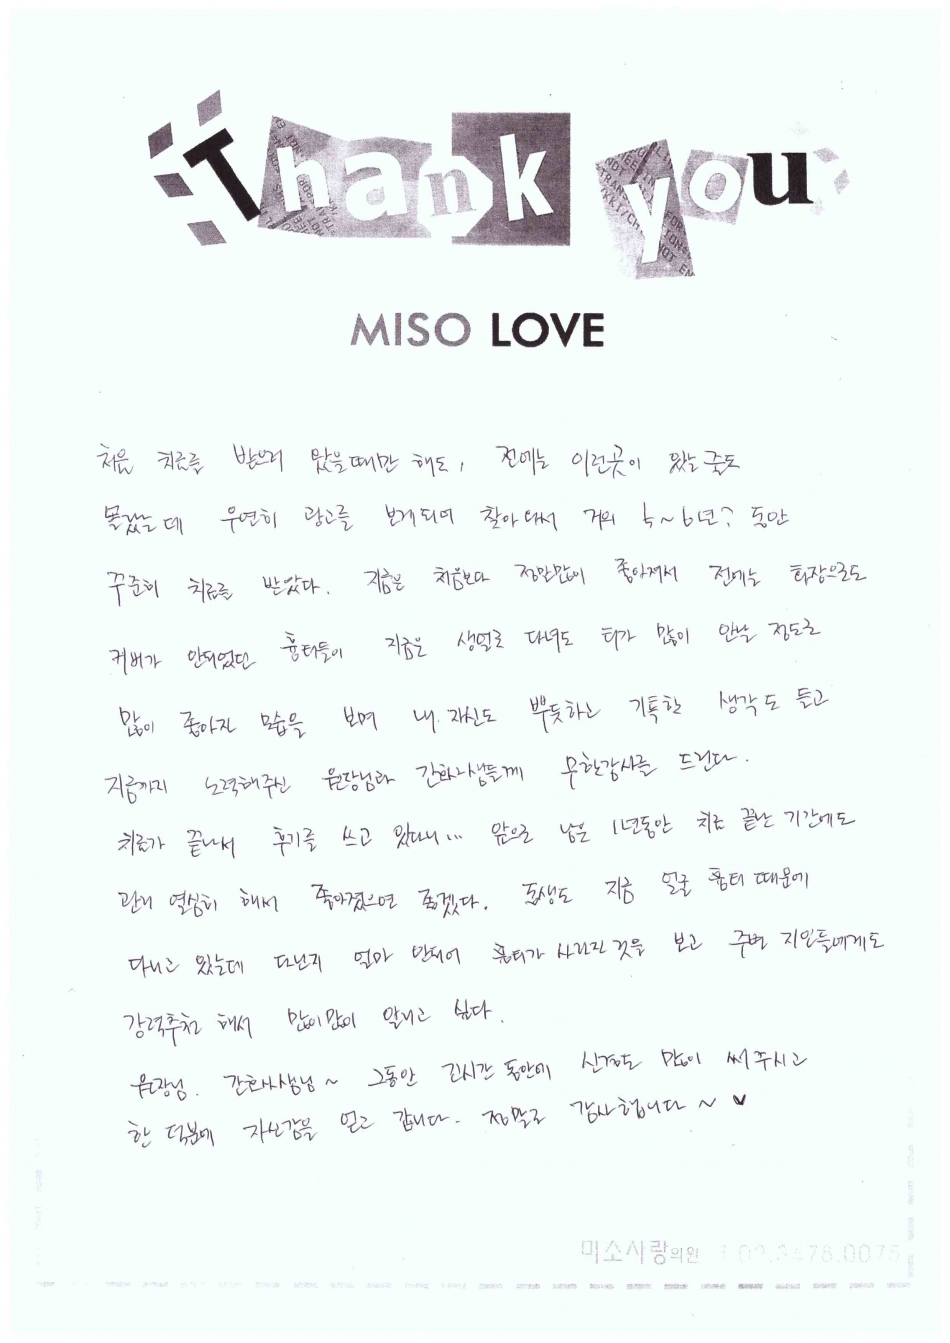 Thank you
MISO LOVE
처음 치료를 받으러 왔을때만 해도, 전에는 이런곳이 있는줄도
몰랐는데 우연히 광고를 보게되어 찾아와서 거의 5~6년? 동안
꾸준히 치료를 받았다. 지금은 처음보다 정말많이 좋아져서 전에는 화장으로도
커버가 안되었던 흉터들이 지금은 생얼로 다녀도 티가 많이 안날 정도로
많이 좋아진 모습을 보며 내 자신도 뿌듯하고 기특한 생각도 들고
지금까지 노력해주신 원장님과 간호사샘들께 무한감사를 드린다.
치료가 끝나서 후기를 쓰고 있다니... 앞으로 남은 1년동안 치료 끝난 기간에도
관리 열심히 해서 좋아졌으면 좋겠다. 동생도 지금 얼굴 흉터 때문에
다니고 있는데 다닌지 얼마 안되어 흉터가 사라진 것을 보고 주변 지인들에게도
강력추천 해서 많이많이 알리고 싶다.
원장님. 간호사샘님~ 그동안 긴시간 동안에 신경도 많이 써주시고
한 덕분에 자신감을 얻고 갑니다. 정말로 감사합니다~ ♥
미소사랑의원 T.02.3478.0075